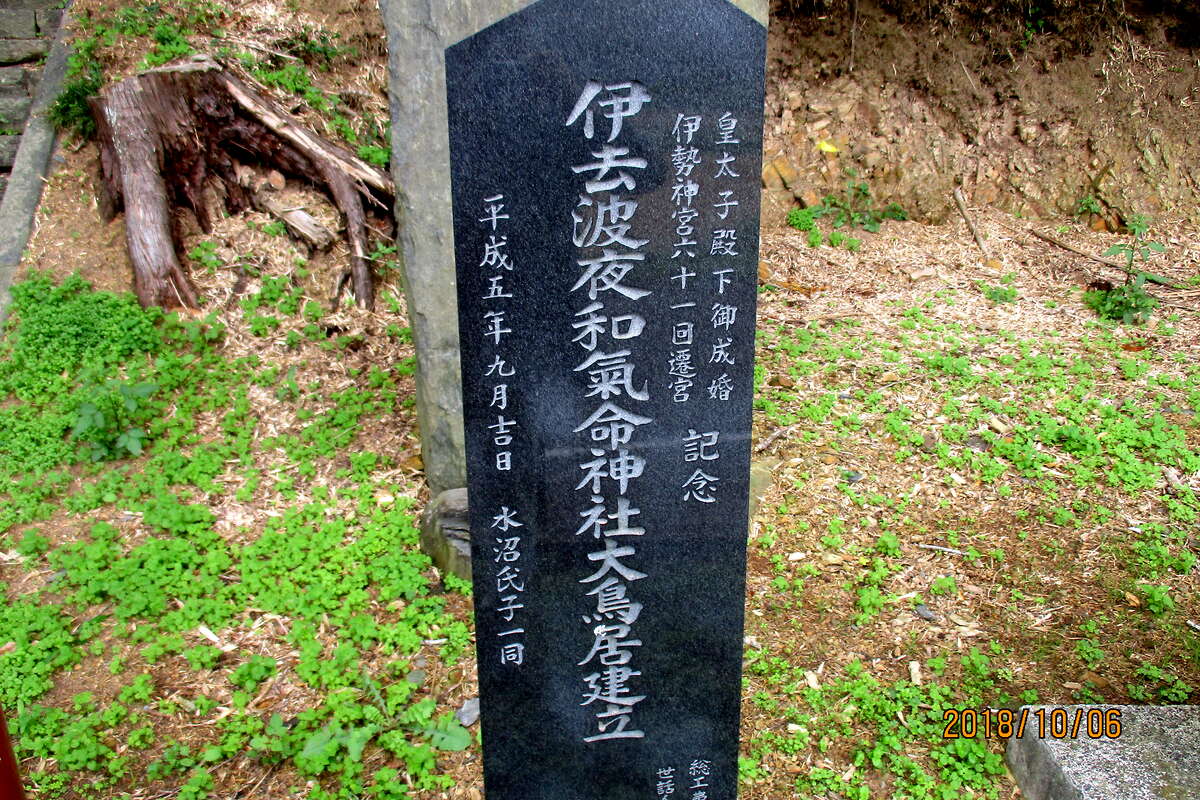 皇太子殿下御成婚
伊勢神宮六十一回遷宮
記念
伊去波夜和氣命神社大鳥居建立
平成五年九月吉日 水沼氏子一同
総工
世話
2018/10/06